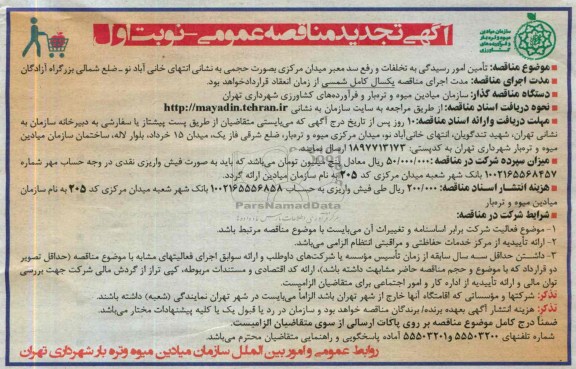 آگهی تجدید مناقصه عمومی-نوبت اول
سازمان میادین
میوه و تره بار
و فرآورده‌های
کشاورزی
موضوع مناقصه: تأمین امور رسیدگی به تخلفات و رفع سد معبر میدان مرکزی بصورت حجمی به نشانی انتهای خانی آباد نو-ضلع شمالی بزرگراه آزادگان
مدت اجرای مناقصه: مدت اجرای مناقصه یکسال کامل شمسی از زمان انعقاد قراردادخواهد بود.
دستگاه مناقصه گذار: سازمان میادین میوه و تره‌بار و فرآورده‌های کشاورزی شهرداری تهران
نحوه دریافت اسناد مناقصه: از طریق مراجعه به سایت سازمان به نشانی http://mayadin.tehran.ir
مهلت دریافت وارائه اسناد مناقصه: ۱۰ روز پس از تاریخ درج آگهی که می‌بایستی متقاضیان از طریق پست پیشتاز یا سفارشی به دبیرخانه سازمان به
نشانی تهران، شهید تندگویان، انتهای خانی‌آباد نو، میدان مرکزی میوه و تره‌بار، ضلع شرقی فاز یک، میدان ۱۵ خرداد، بلوار لاله، ساختمان سازمان میادین
میوه و تره‌بار شهرداری تهران به کدپستی: ۱۸۹۷۷۱۳۱۷۳ ارسال نمایند.
میزان سپرده شرکت در مناقصه: ۵۰/۰۰۰/۰۰۰ ریال معادل پنج میلیون تومان می‌باشد که باید به صورت فیش واریزی نقدی در وجه حساب مهر شماره
۱۰۰۲۱۶۵۵۶۸۴۵۷ بانک شهر شعبه میدان مرکزی کد ۲۰۵ به نام سازمان میادین ارائه گردد.
هزینه انتشار اسناد مناقصه: ۲۰۰/۰۰۰ ریال طی فیش واریزی به حساب ۱۰۰۲۱۶۵۵۵۶۸۵۸ بانک شهر شعبه میدان مرکزی کد ۲۰۵ به نام سازمان
میادین میوه و تره‌بار
شرایط شرکت در مناقصه:
۱- موضوع فعالیت شرکت برابر اساسنامه و تغییرات آن می‌بایست با موضوع مناقصه مرتبط باشد.
۲- ارائه تأییدیه از مرکز خدمات حفاظتی و مراقبتی انتظام الزامی می‌باشد.
۳- داشتن حداقل سه سال سابقه از زمان تأسیس مؤسسه یا شرکت‌های داوطلب و ارائه سوابق اجرای فعالیتهای مشابه با موضوع مناقصه (حداقل تصویر
دو قرارداد که با موضوع و حجم مناقصه حاضر مشابهت داشته باشد)، ارائه کد اقتصادی و مستندات مربوطه، کپی تراز از گردش مالی شرکت جهت بررسی
توان مالی و ارائه تأییدیه از اداره کار و امور اجتماعی برای متقاضیان الزامیست.
تذکر: شرکتها و مؤسساتی که اقامتگاه آنها خارج از شهر تهران باشد الزاماً می‌بایست در شهر تهران نمایندگی (شعبه) داشته باشند.
تذکر: هزینه انتشار آگهی بعهده برنده/برندگان مناقصه خواهد بود و سازمان در رد یا قبول یک یا کلیه پیشنهادات مختار می‌باشد.
ضمناً درج کامل موضوع مناقصه بر روی پاکات ارسالی از سوی متقاضیان الزامیست.
شماره تلفنهای ۵۵۵۰۳۲۰۰ و ۵۵۵۰۳۲۰۱ آماده پاسخگویی و راهنمایی متقاضیان محترم می‌باشد.
روابط عمومی و امور بین الملل سازمان میادین میوه وتره بار شهرداری تهران
ParsNamadData